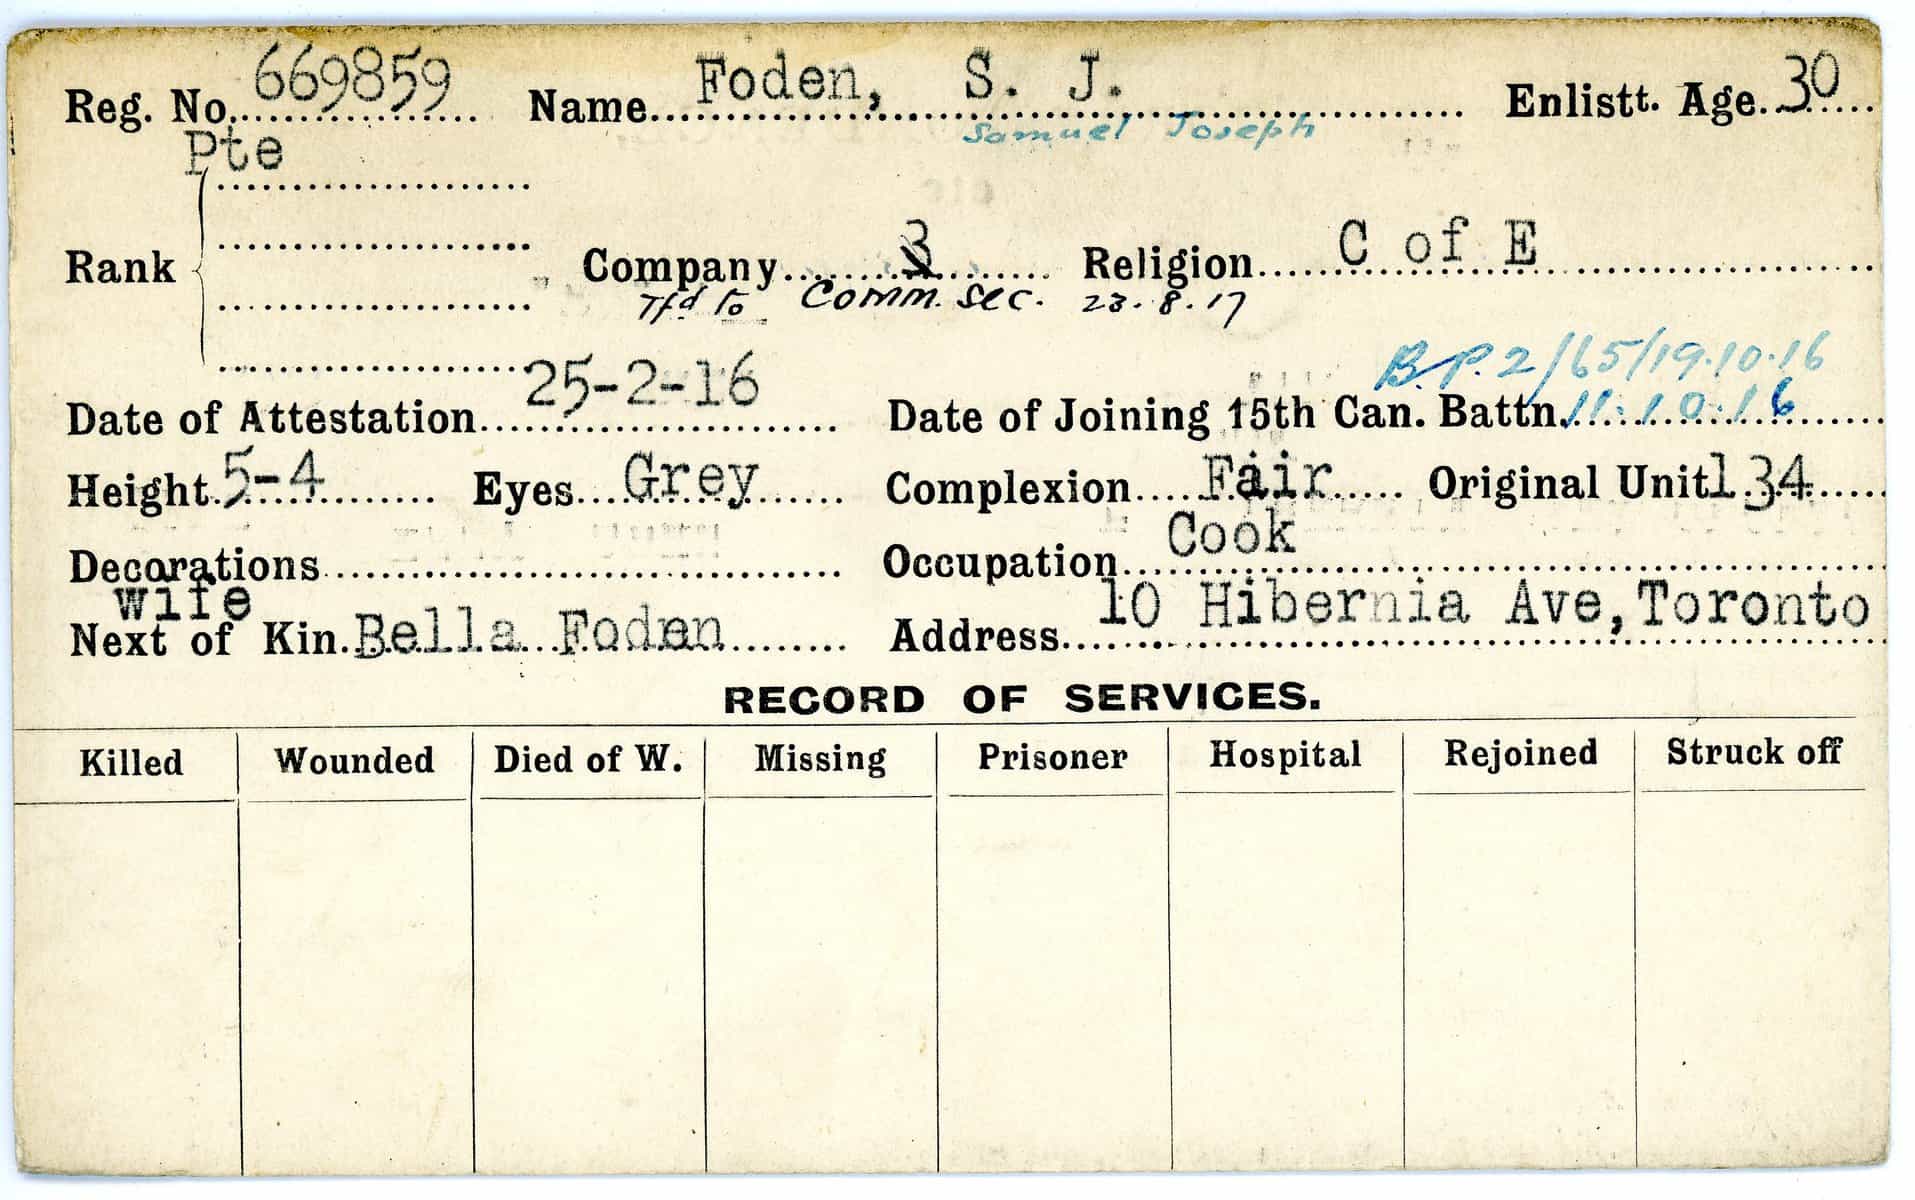 Reg. No. 669859 Name Foden, S. J. Enlistt. Age 30
Samuel Joseph
Pte
Rank Company 3 Religion C of E
Tfd to Comm. Sec. 23.8.17
B.P. 2/65/19.10.16
Date of Attestation 25-2-16 Date of Joining 15th Can. Battn. 11.10.16
Height 5-4 Eyes Grey Complexion Fair Original Unit 134
Decorations Occupation Cook
wife
Next of Kin Bella Foden Address 10 Hibernia Ave, Toronto
RECORD OF SERVICES.
Killed Wounded Died of W. Missing Prisoner Hospital Rejoined Struck off